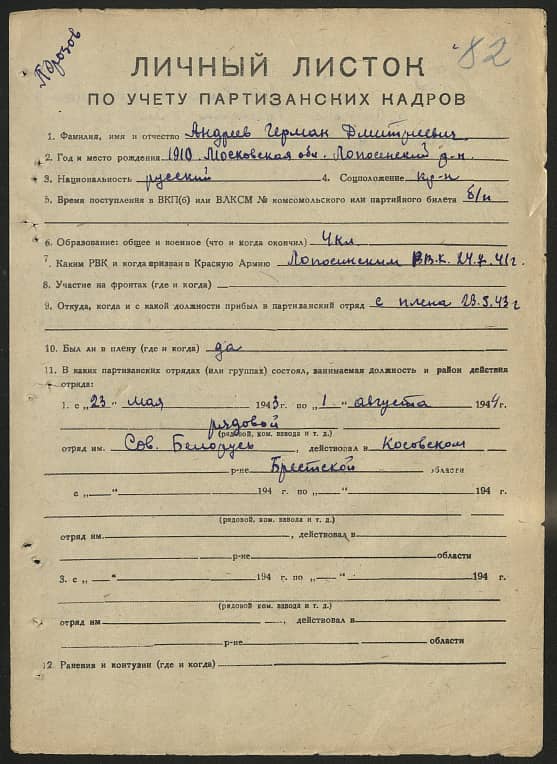 82
ЛИЧНЫЙ ЛИСТОК
ПО УЧЕТУ ПАРТИЗАНСКИХ КАДРОВ
1. Фамилия, имя и отчество Андреев Герман Дмитриевич
2. Год и место рождения 1910 Московская обл. Лопасненский р-н.
3. Национальность русский 4. Соцположение кр-н
5. Время поступления в ВКП(б) или ВЛКСМ № комсомольского или партийного билета б/п
6. Образование: общее и военное (что и когда окончил) 4 кл
7. Каким РВК и когда призван в Красную Армию Лопасинским Р.В.К. 41 г.
8. Участие на фронтах (где и когда)
9. Откуда, когда и с какой должности прибыл в партизанский отряд с плена 23.5.43 г
10. Был ли в плену (где и когда) да
11. В каких партизанских отрядах (или группах) состоял, занимаемая должность и район действия
отряда:
1. с „23" мая 1943 г. по „1" августа 1944 г.
рядовой
(рядовой, ком. взвода и т. д.)
отряд им. Сов. Белорусь, действовал в Косовском
р-не Брестской области
с „ " 194 г. по „ " 194 г.
(рядовой, ком. взвода и т. д.)
отряд им. , действовал в
р-не области
3. с „ " 194 г. по „ " 194 г.
(рядовой, ком. взвода и т. д.)
отряд им , действовал в
р-не области
12. Ранения и контузии (где и когда)